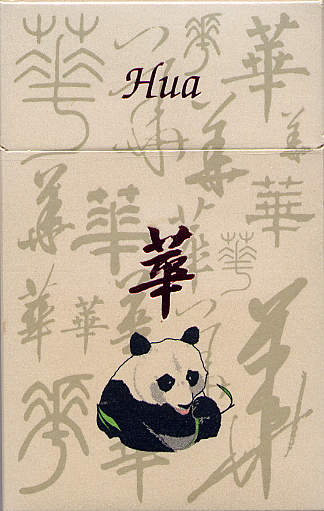 Hua
華